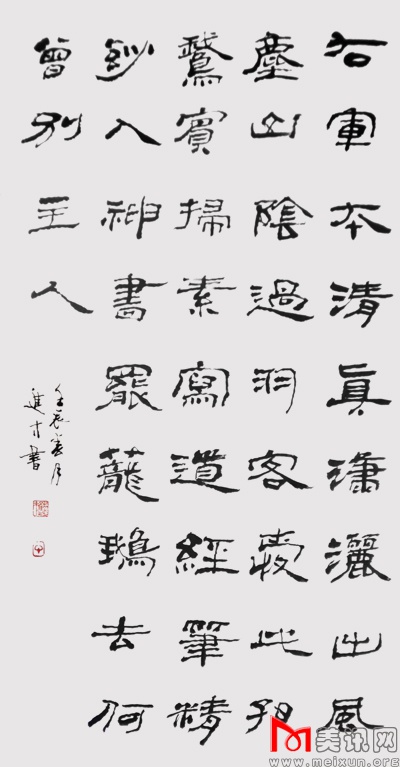 右軍本清眞瀟灑出風
塵山陰過羽客愛此好
鵞賓掃素寫道經筆精
妙入神書罷蘢鵝去何
曾别主人
壬辰春月
進才書
美讯网
www.meixun.org